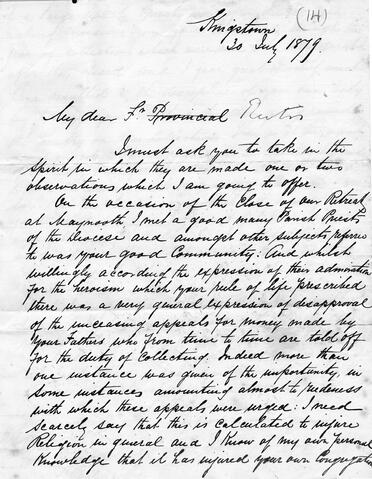 (14)
Kingstown
20 July 1879.
My dear Fr Provincial Rector
I must ask you to take in the
Spirit in which they are made one or two
observations which I am going to offer.
On the occasion of the Close of our Retreat
at Maynooth, I met a good many Parish Priests
of the Diocese and amongst other subjects referred
to was your good Community: And whilst
willingly according the expression of their admiration
for the heroism which your rule of life prescribed
there was a very general expression of disapproval
of the unceasing appeals for money made by
Your Fathers who from time to time are told off
for the duty of Collecting. Indeed more than
one instance was given of the importunity, in
some instances amounting almost to rudeness
with which these appeals were urged: I need
scarcely say that this is calculated to injure
Religion in general and I know of my own personal
Knowledge that it has injured your own Congregation